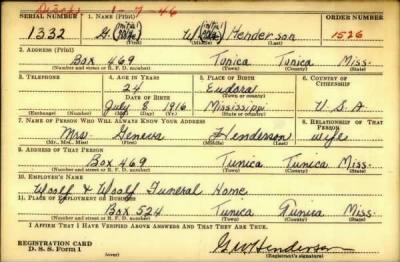 Disch. 1-7-46
SERIAL NUMBER 1. NAME (Print) ORDER NUMBER
1332 G. (initial) W (initial) Henderson 1526
(First) (Middle) (Last)
2. ADDRESS (Print)
Box 469 Tunica Tunica Miss.
(Number and street or R. F. D. number) (Town) (County) (State)
3. TELEPHONE 4. AGE IN YEARS 5. PLACE OF BIRTH 6. COUNTRY OF CITIZENSHIP
24 Eudora
DATE OF BIRTH (Town or county)
July 8, 1916 Mississippi U. S. A
(Exchange) (Number) (Mo.) (Day) (Yr.) (State or country)
7. NAME OF PERSON WHO WILL ALWAYS KNOW YOUR ADDRESS 8. RELATIONSHIP OF THAT PERSON
Mrs. Geneva Henderson wife
(Mr., Mrs., Miss) (First) (Middle) (Last)
9. ADDRESS OF THAT PERSON
Box 469 Tunica Tunica Miss.
(Number and street or R. F. D. number) (Town) (County) (State)
10. EMPLOYER'S NAME
Woolf & Woolf Funeral Home
11. PLACE OF EMPLOYMENT OR BUSINESS
Box 524 Tunica Tunica Miss
(Number and street or R. F. D. number) (Town) (County) (State)
I AFFIRM THAT I HAVE VERIFIED ABOVE ANSWERS AND THAT THEY ARE TRUE.
REGISTRATION CARD
D. S. S. Form 1 (over) G W Henderson
(Registrant's signature)